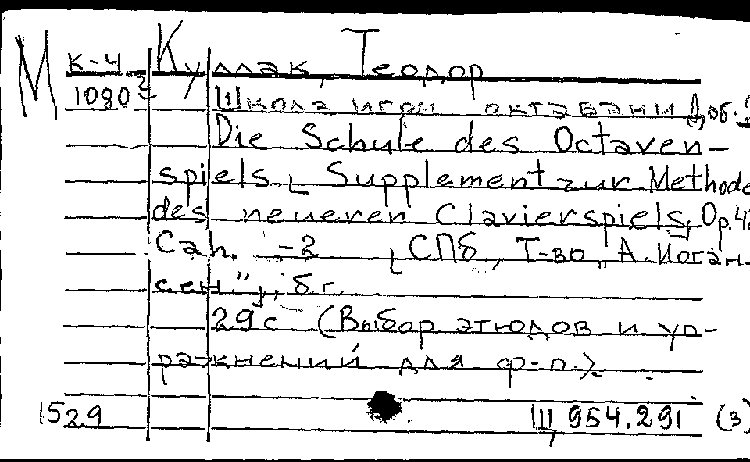 М К-4 Куллак, Теодор
1080 Школа игры октавами Доб.
Die Schule des Octaven-
spiels. Supplement zur Methode
des neueren Clavierspiels, Op. 4
Cah. -2 [СПб, Т-во „А. Иоган-
сен"], б г.
29 с (Выбор этюдов и уп-
ражнений для ф-п.).
1529 Ш 954.291 (3)